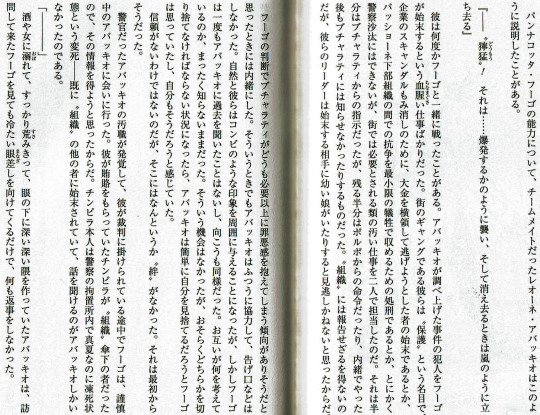 パンナコッタ・フーゴの能力について、チームメイトだったレオーネ・アバッキオはこのよ
うに説明したことがある。
『――〝獰猛〟！　それは……爆発するかのように襲い、そして消え去るときは嵐のように立
ち去る』
彼は何度かフーゴと一緒に戦ったことがある。アバッキオが調べ上げた事件の犯人をフーゴ
が始末するという血腥い仕事ばかりだった。街のギャングである彼らは〝保護〟という名目で、
企業のスキャンダルもみ消しのために、大金を横領して逃げようとした者の始末であるとか、
パッショーネ下部組織の間での抗争を最小限の犠牲で収めるための処刑であるとか、とにかく
警察沙汰にはできないが、街では必要とされる類の汚い仕事を二人で担当したのだ。それは半
分はブチャラティからの指示だったが、残る半分はポルポからの命令だったり、内緒でやった
後もブチャラティには知らせなかったりするものだった。〝組織〟には報告せざるを得ないの
だが、彼らのリーダーは始末する相手に幼い娘がいたりすると見逃しかねないと思ったからだ。
フーゴの判断でブチャラティがどうも必要以上に罪悪感を抱えてしまう傾向がありそうだと
思ったときには内緒にした。そういうときでもアバッキオはふつうに協力して、告げ口などは
しなかった。自然と彼らはコンビのような印象を周囲に与えることになったが、しかしフーゴ
は一度もアバッキオに過去を聞いたことはないし、向こうも同様だった。お互いが何を考えて
いるのか、まったく知らないままだった。そういう機会はなかったが、おそらくどちらかを切
り捨てなければならない状況になったら、アバッキオは簡単に自分を見捨てるだろうとフーゴ
は思っていたし、自分もそうだろうと感じていた。
信頼がないわけではないのだが、そこにはなんというか〝絆〟がなかった。それは最初から
そうだった。
警官だったアバッキオの汚職が発覚して、彼が裁判に掛けられている途中でフーゴは、謹慎
中のアバッキオに会いに行った。彼が賄賂をもらっていたチンピラが〝組織〟傘下の者だった
ので、その情報を得ようと思ったからだ。チンピラ本人は警察の拘置所内で真夏なのに凍死状
態という変死――既に〝組織〟の他の者に始末されていて、話を聞けるのがアバッキオしかい
なかったのである。
「――――」
酒や女に溺れて、すっかり荒みきって、眼の下に深い深い隈を作っていたアバッキオは、訪
問して来たフーゴを見ても冷たい眼差しを向けてくるだけで、何も返事をしなかった。